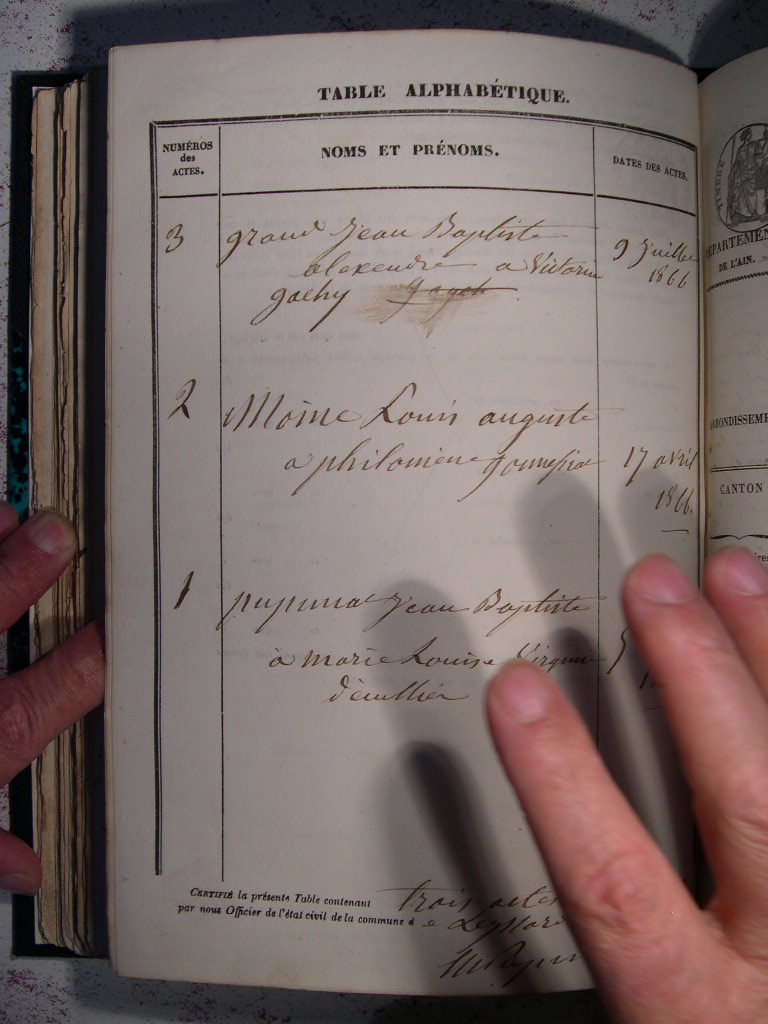 TABLE ALPHABÉTIQUE.
NUMÉROS
des
ACTES.
NOMS ET PRÉNOMS.
DATES DES ACTES.
3 grand Jean Baptiste 9 Juillet
alexendre a Victorine 1866
gachy
2 Moine Louis auguste
a philomene gonnessiat 17 avril
1866.
1 pupunat Jean Baptiste
à marie Louise Virginie
d'écullier
CERTIFIÉ la présente Table contenant trois actes
par nous Officier de l'état civil de la commune d e Leyssard
TIMBRE
DÉPARTEMEN
DE L'AIN.
ARRONDISSEME
CANTON